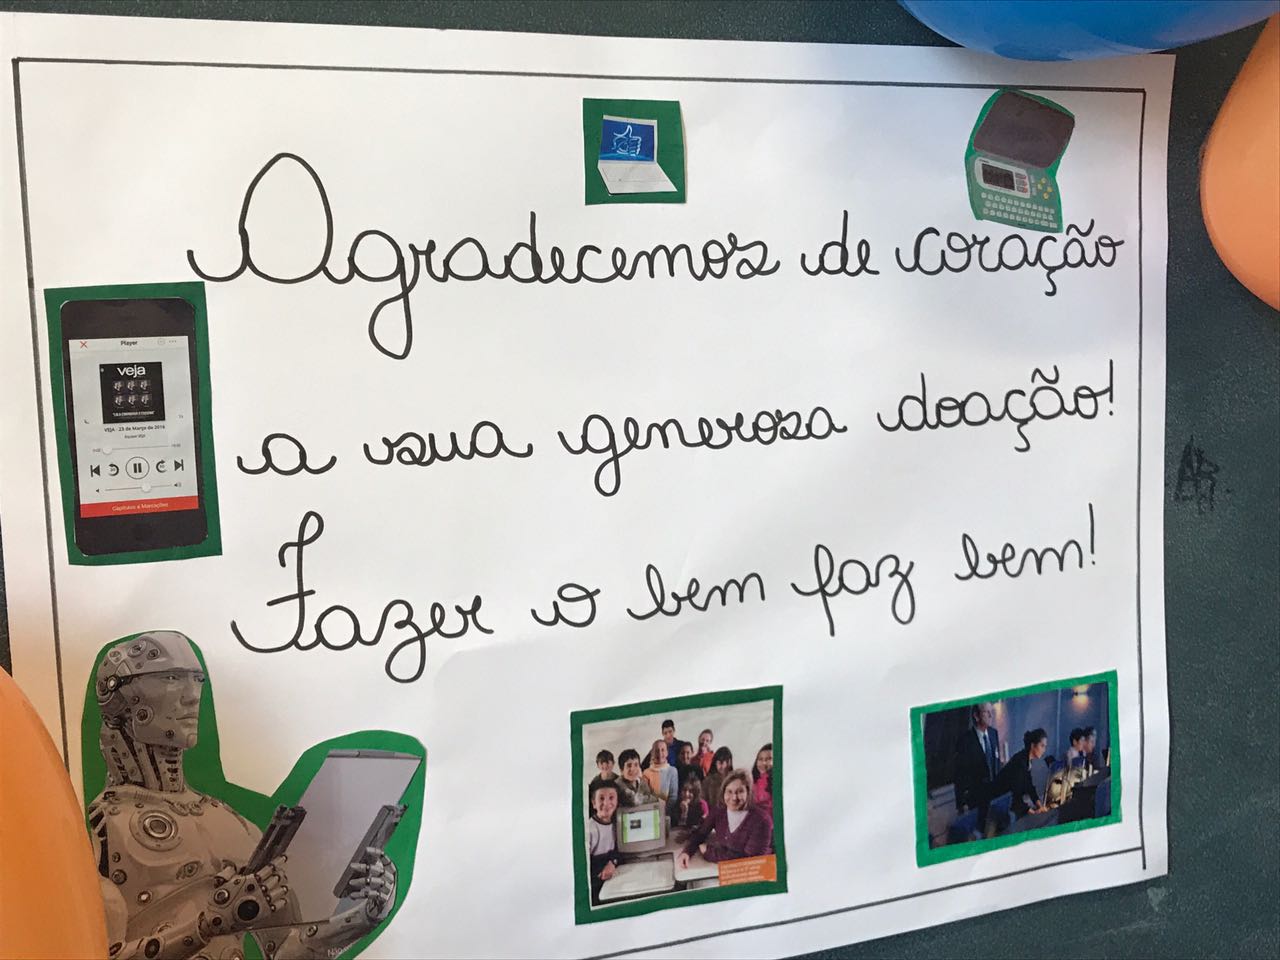 Agradecemos de coração
a sua generosa doação!
Fazer o bem faz bem!
Player
veja
VEJA - 23 de Março de 2016
Capítulos e Marcações